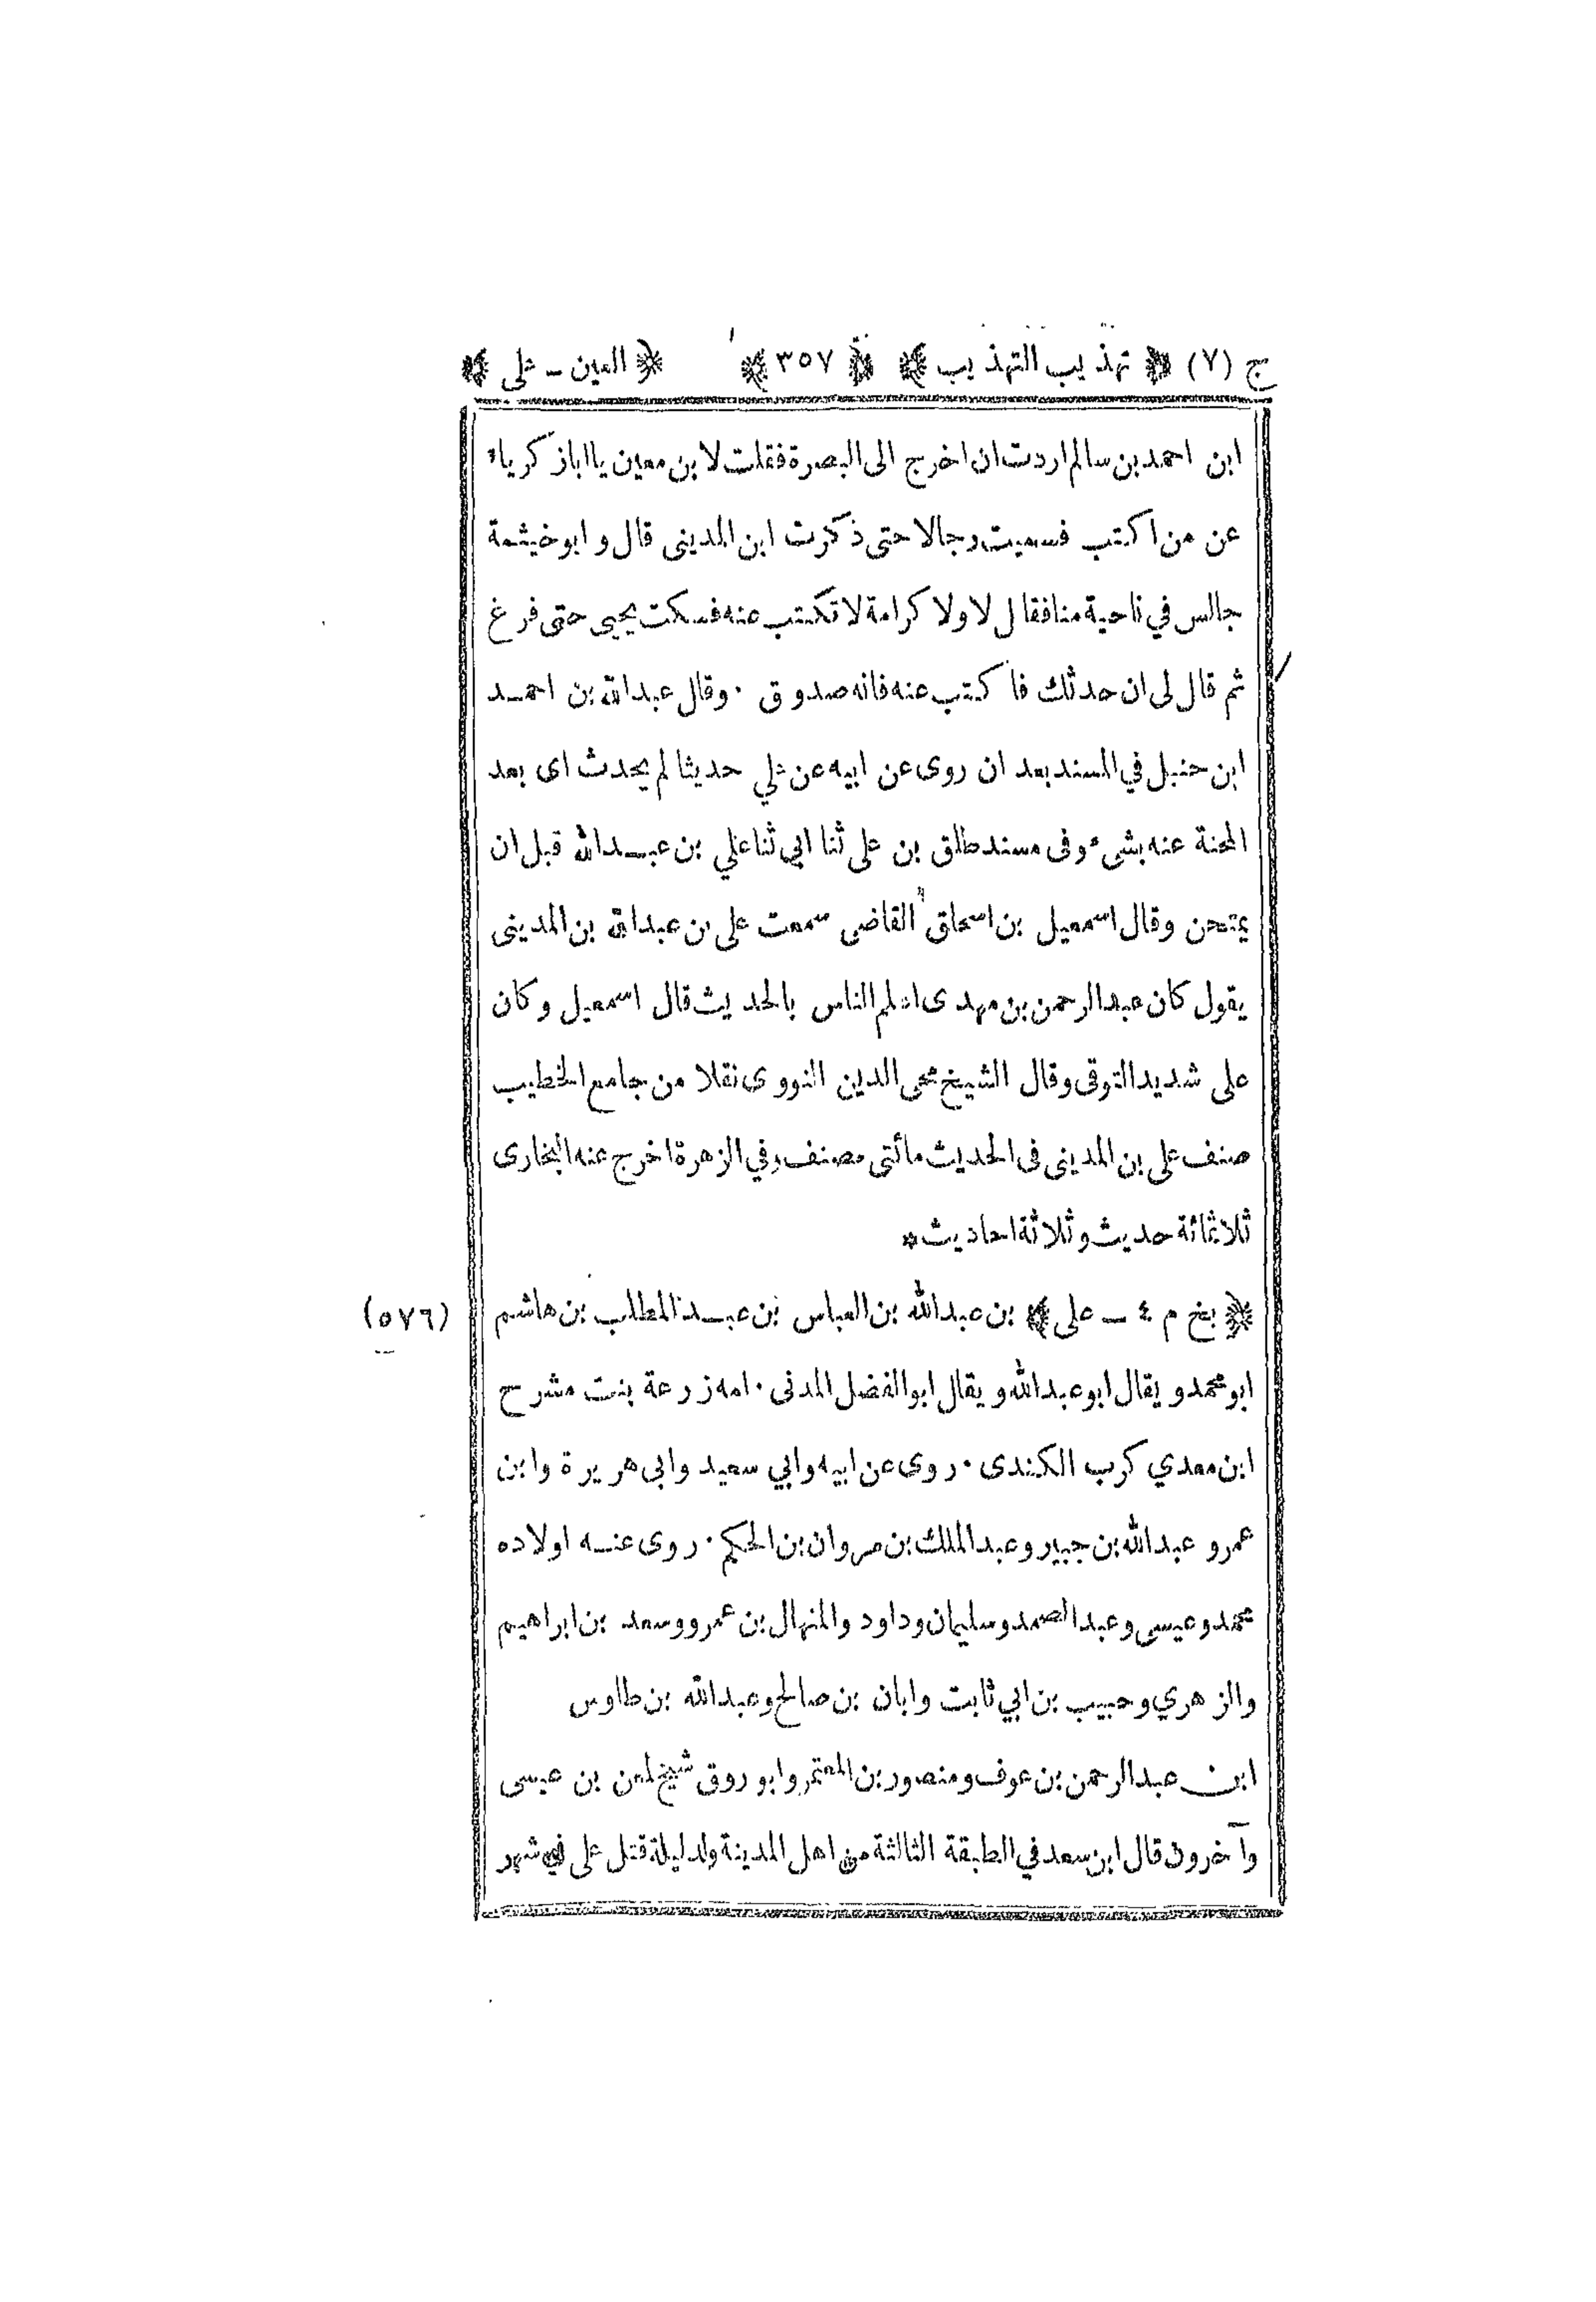 ج (٧) ﴿ تهذيب التهذيب ﴾ ﴿ ٣٥٧ ﴾ ﴿ العين ـ على ﴾
ابن احمد بن سالم اردت ان اخرج الى البصرة فقلت لابن معين يا ابازكرياء
عن من اكتب فسميت رجالا حتى ذكرت ابن المدينى قال وابوخيثمة
جالس في ناحية منا فقال لا ولا كرامة لا تكتب عنه فسكت يحيى حتى فرغ
ثم قال لى ان حدثك فاكتب عنه فانه صدوق ٠ وقال عبدالله بن احمد
ابن حنبل في المسند بعد ان روى عن ابيه عن علي حديثا لم يحدث اى بعد
المحنة عنه بشىء وفى مسند طلق بن على ثنا ابي ثنا علي بن عبدالله قبل ان
يمتحن وقال اسمعيل بن اسحاق القاضى سمعت على بن عبدالله بن المدينى
يقول كان عبدالرحمن بن مهدى اعلم الناس بالحديث قال اسمعيل وكان
على شديد التوقى وقال الشيخ محى الدين النووى نقلا من جامع الخطيب
صنف على بن المدينى فى الحديث مائتى مصنف وفي الزهرة اخرج عنه البخارى
ثلاثمائة حديث وثلاثة احاديث *
﴿ بخ م ٤ ـ على ﴾ بن عبدالله بن العباس بن عبدالمطلب بن هاشم
(٥٧٦)
ابومحمد ويقال ابوعبدالله ويقال ابوالفضل المدنى ٠ امه زرعة بنت مشرح
ابن معدي كرب الكندى ٠ روى عن ابيه وابي سعيد وابى هريرة وابن
عمرو عبدالله بن جبير وعبدالملك بن مروان بن الحكم ٠ روى عنه اولاده
محمد وعيسى وعبدالصمد وسليمان وداود والمنهال بن عمرو وسعد بن ابراهيم
والزهري وحبيب بن ابي ثابت وابان بن صالح وعبدالله بن طاوس
ابن عبدالرحمن بن عوف ومنصور بن المعتمر وابو روق شيخ لمعن بن عيسى
وآخرون قال ابن سعد في الطبقة الثالثة من اهل المدينة ولد ليلة قتل على في شهر